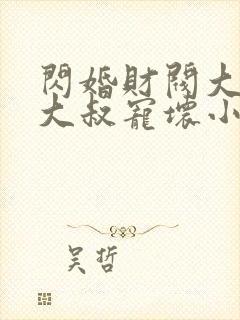 閃婚財閥大
大叔寵壞小
吴哲